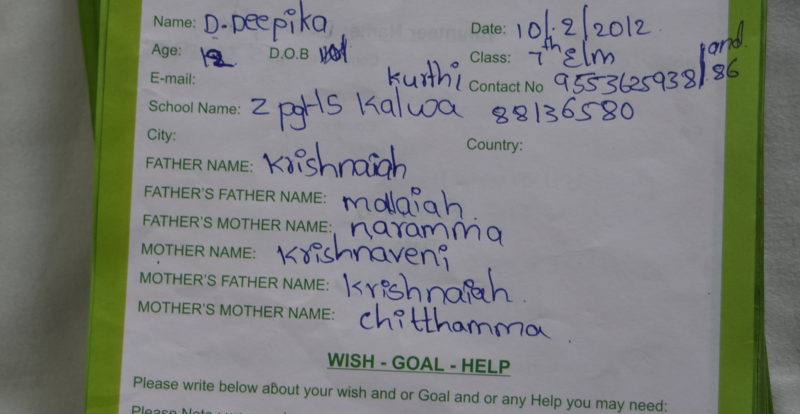 Name: D. Deepika Date: 10/.2/2012
Age: 12 D.O.B Class: 7th Elm
E-mail: Kurthi Contact No 9553625938/ and 86
School Name: Z pgHS Kalwa 88136580
City: Country:
FATHER NAME: Krishnaiah
FATHER'S FATHER NAME: mallaiah.
FATHER'S MOTHER NAME: naramma
MOTHER NAME: Krishnaveni
MOTHER'S FATHER NAME: Krishnaiah.
MOTHER'S MOTHER NAME: Chitthamma.
WISH - GOAL - HELP
Please write below about your wish and or Goal and or any Help you may need:
Please Note